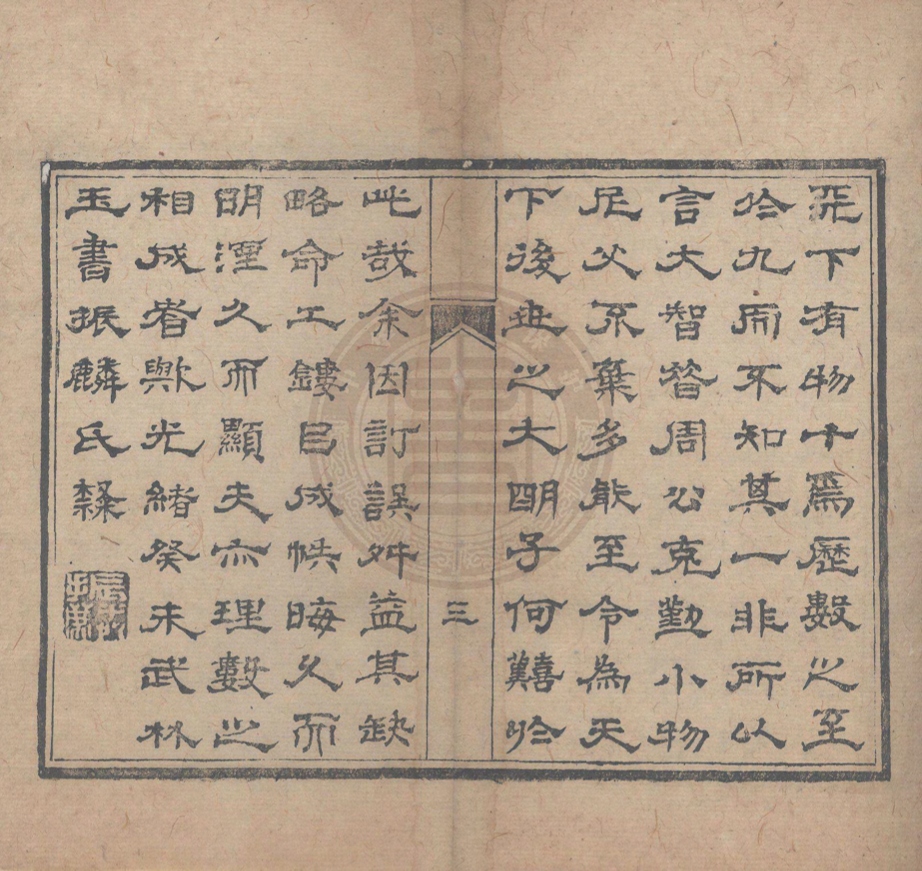 天下有物十爲歷數之至
於九而不知其一非所以
言大智昔周公克勤小物
尼父不棄多能至令為天
下後世之大朙子何難於
三
此哉余因訂誤舛益其缺
略命工鏤已成帙晦久而
朙湮久而顯夫亦理數之
相成者歟光緒癸未武林
玉書振麟氏隸